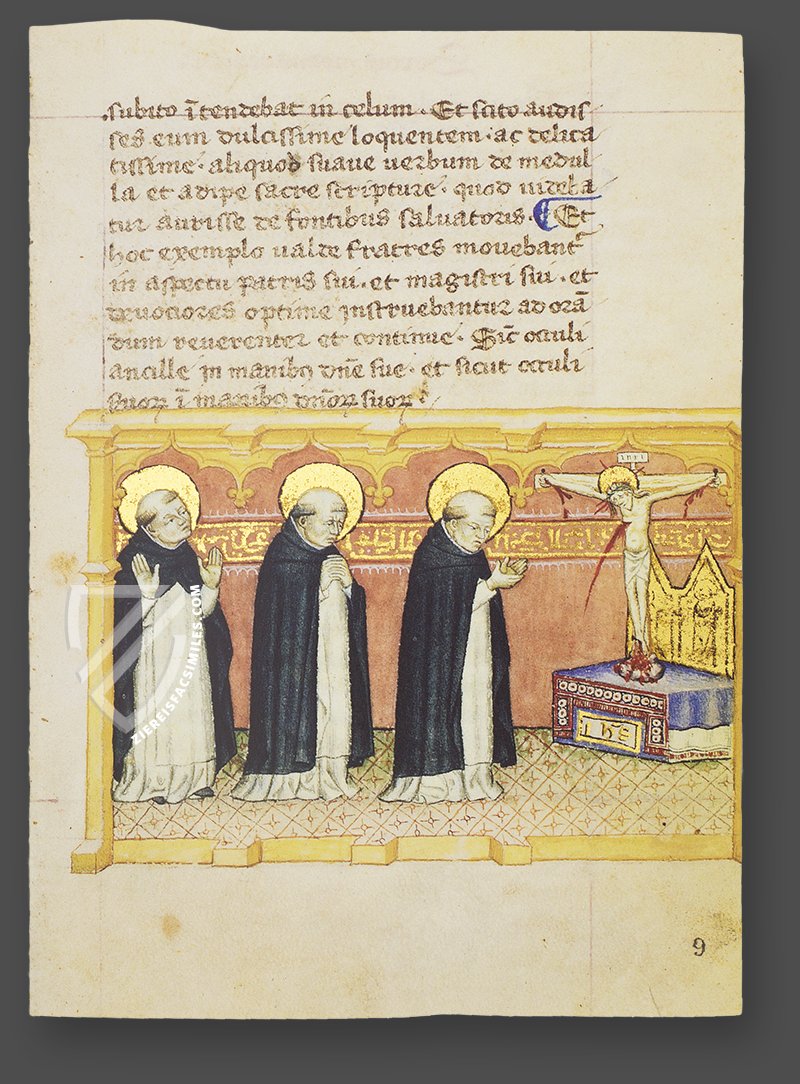 subito ītendebat in celum · Et scito audis
ses eum dulcissime loquentem · ac delica
tissime · aliquod suaue uerbum de medul
la et adipe sacre scripture · quod uideba
tur aurisse de fontibus saluatoris · ¶ Et
hoc exemplo ualde fratres mouebant᷑
in aspectu patris sui · et magistri sui · et
deuociores optime instruebantur ad orā
dum reuerenter et continue · Sic̄ occuli
ancille in manibꝯ dn̄e sue · et sicut occuli
suoꝝ ī manibꝯ dn̄oꝝ suoꝝ
INRI
Ihs
ZIEREISFACSIMILES.COM
9